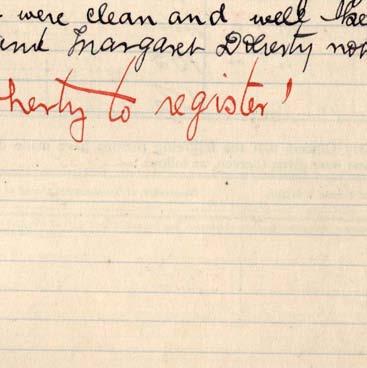 were clean and well
and Margaret Doherty not
herty to register'